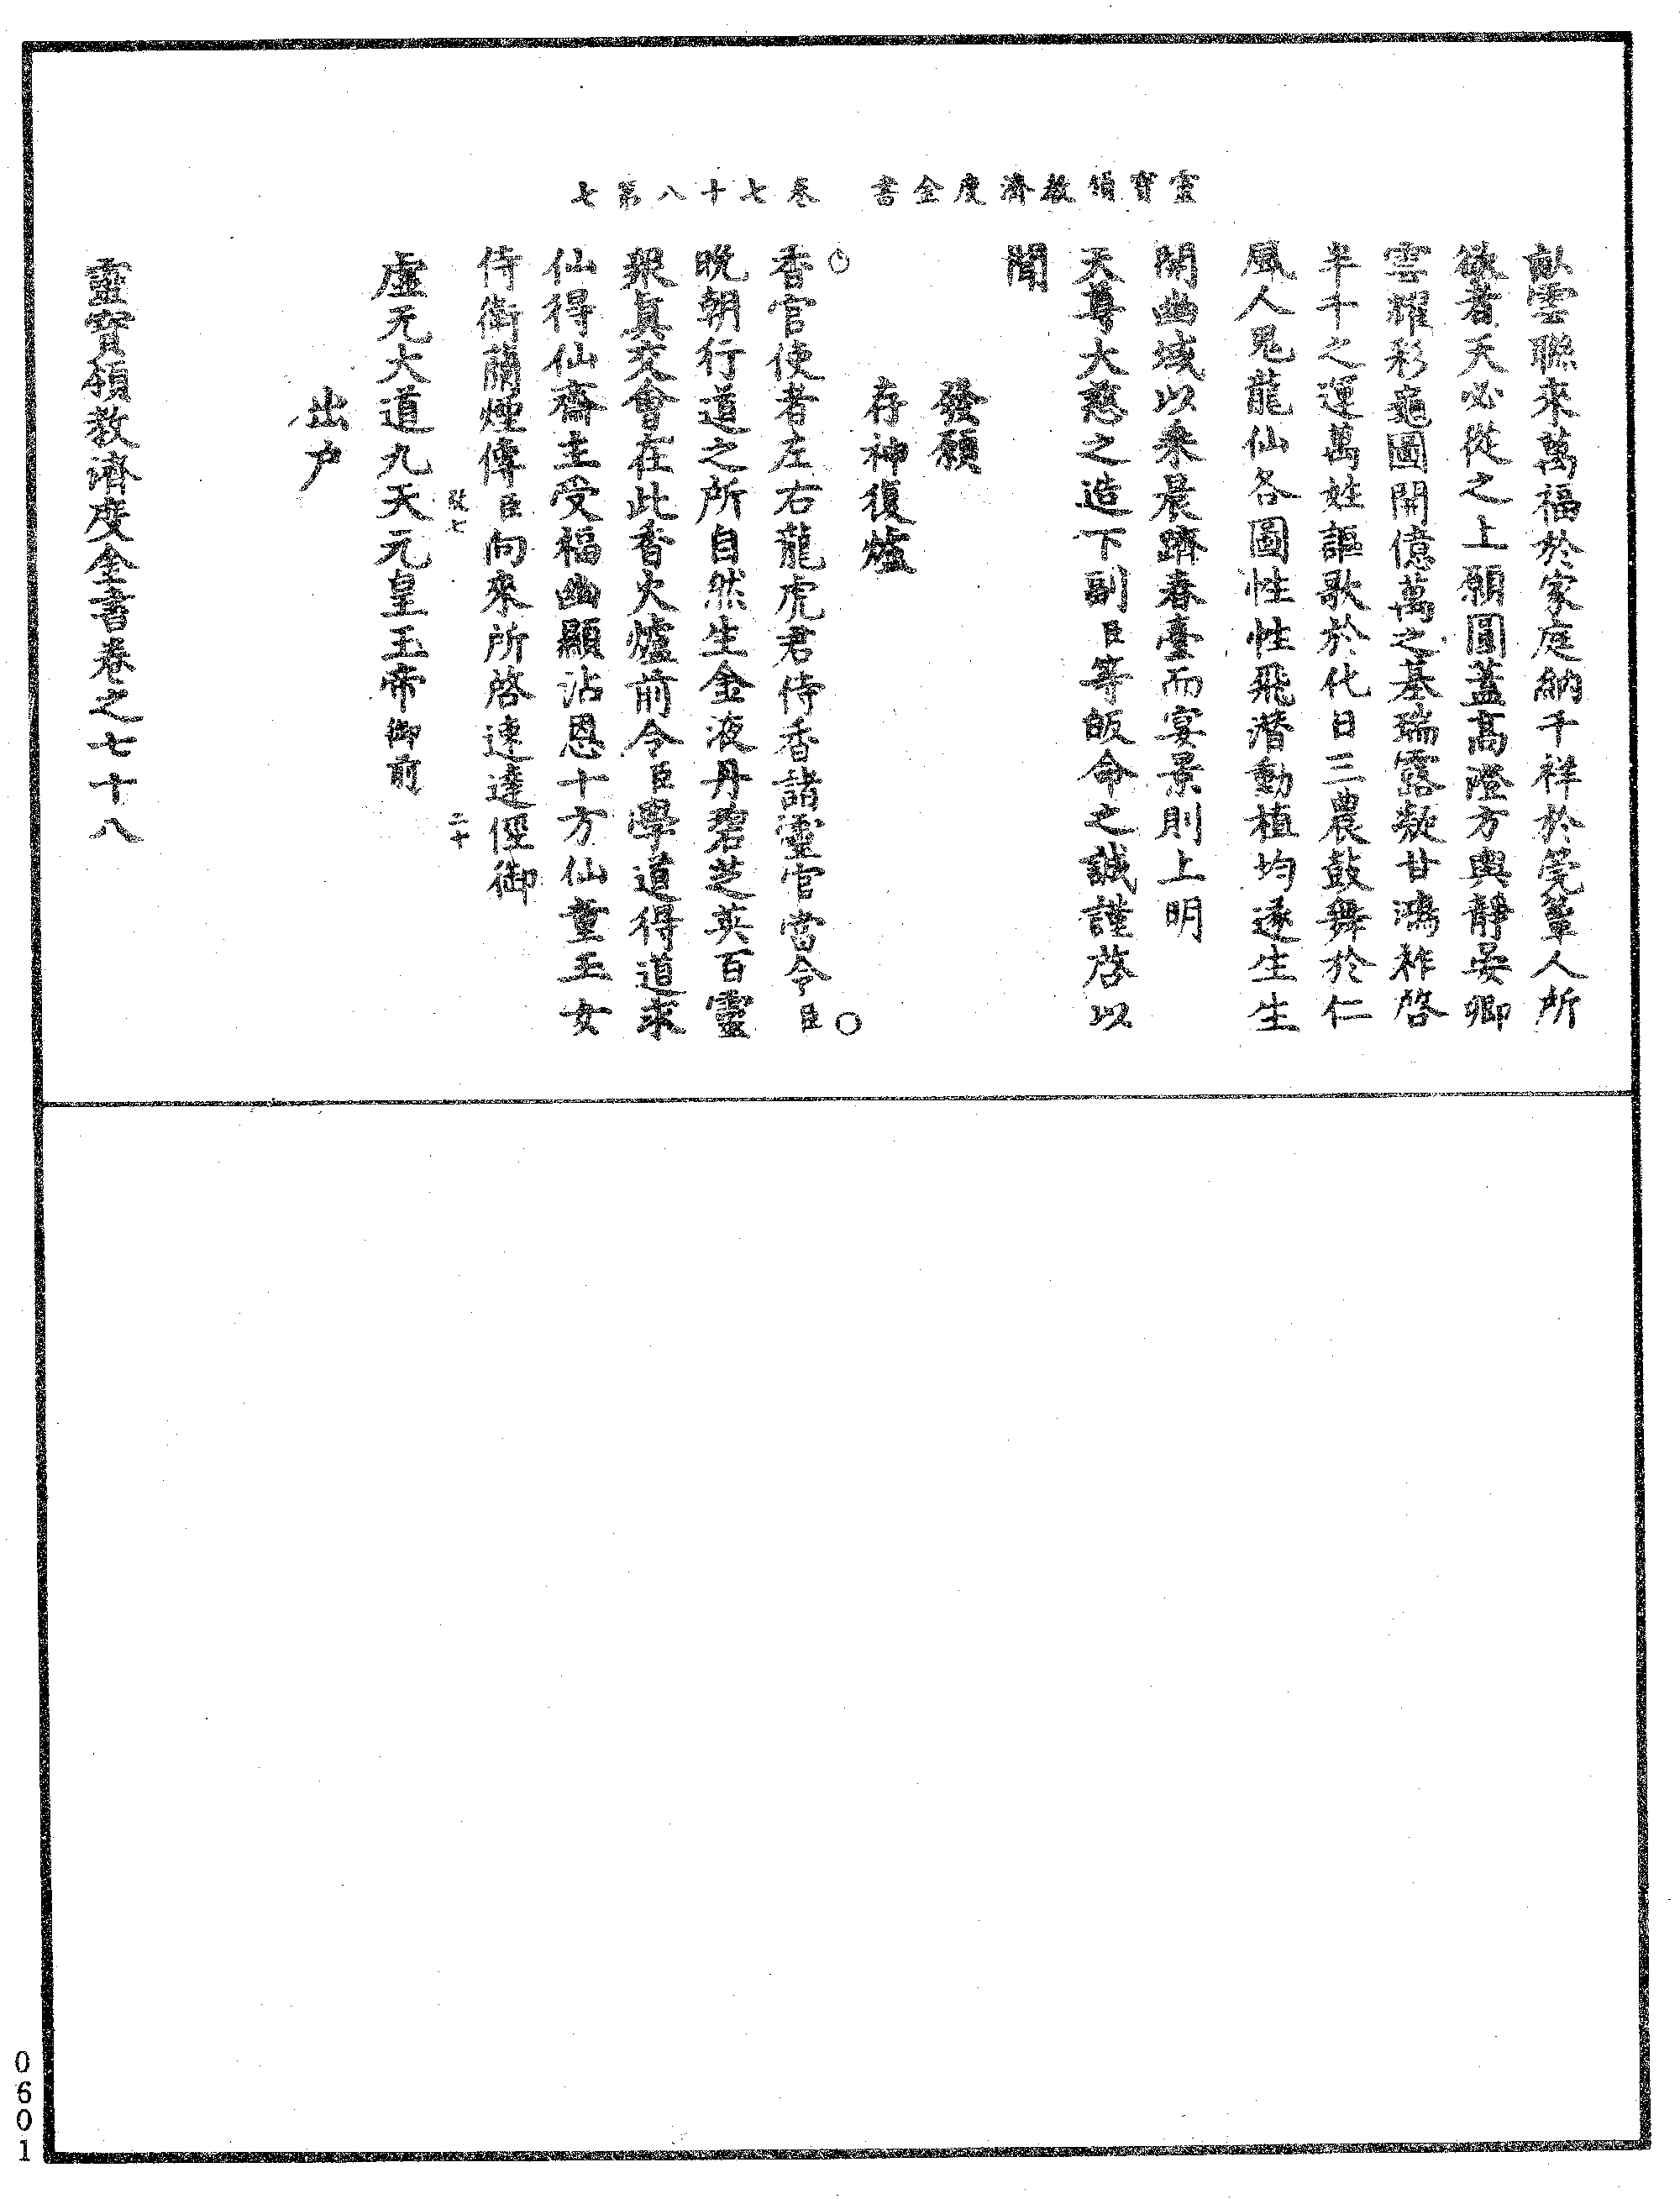 靈寶領教濟度金書　卷七十八第七
畝雲聯來萬福於家庭納千祥於筦簟人所
欲者天必從之上願圓蓋高澄方輿靜晏卿
雲耀彩龜圖開億萬之基瑞露凝甘鴻祚啓
半千之運萬姓謳歌於化日三農鼓舞於仁
風人鬼龍仙各圖性性飛潛動植均遂生生
開幽域以乘晨躋春臺而宴景則上明
天尊大慈之造下副臣等皈命之誠謹啓以
聞
發願
存神復爐
香官使者左右龍虎君侍香諸靈官當令臣
晚朝行道之所自然生金液丹碧芝英百靈
衆真交會在此香火爐前令臣學道得道求
仙得仙齋主受福幽顯沾恩十方仙童玉女
侍衛蘭煙傳臣向來所啓速達徑御
虛无大道九天元皇玉帝御前
出戶
靈寶領教濟度金書卷之七十八
二十
0601